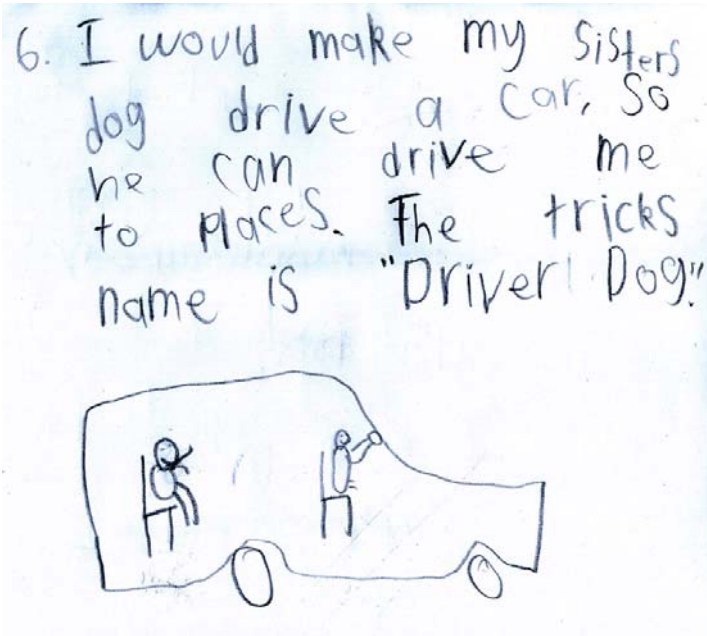 6. I would make my sisters
dog drive a car, so
he can drive me
to places. The tricks
name is "Driver Dog."